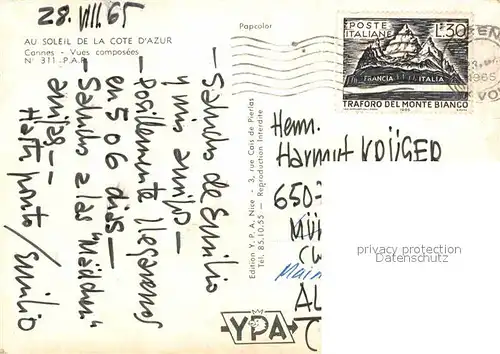 28.VIII.65
AU SOLEIL DE LA COTE D'AZUR
Cannes - Vues composées
N° 311 - P.A.P.
Papcolor
— Saludos de Emilio
y mis amigos —
— Posiblemente llegaremos
en 5 o 6 dias —
Saludos a las "Mädchen"
amigas —
Hasta pronto / Emilio
Edition Y. P. A. Nice - 3, rue Cais de Pierlas
Tél. 85.10.55 — Reproduction Interdite
YPA
POSTE ITALIANE
L.30
FRANCIA ITALIA
TRAFORO DEL MONTE BIANCO
1965
1965
Herrn.
Harmut
650
MÜ
privacy protection
Datenschutz
Main
AL